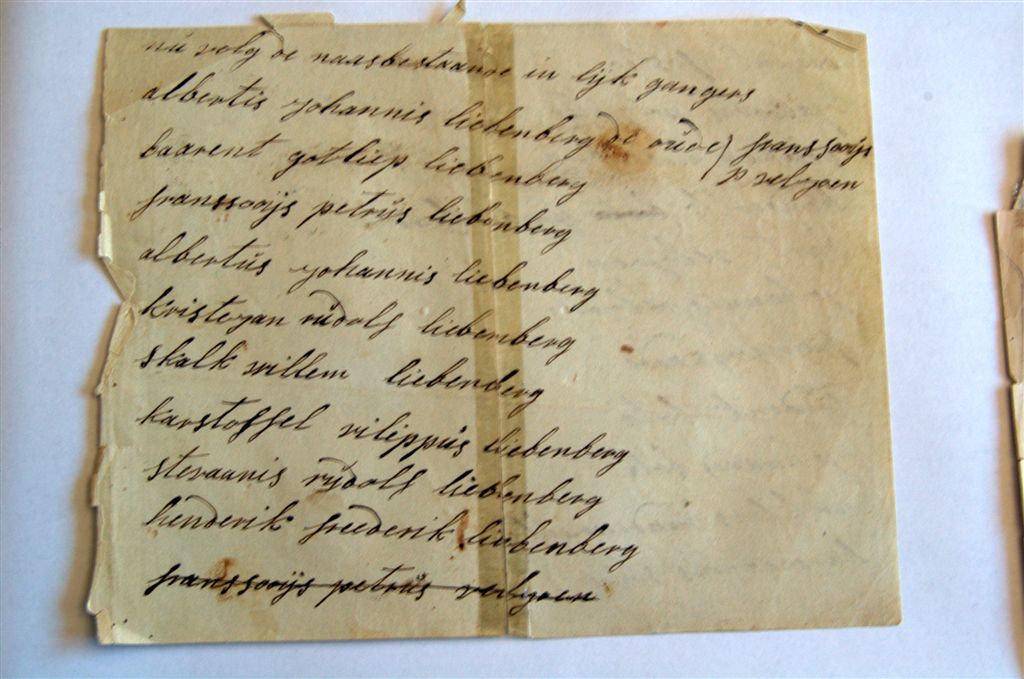 nu volg de naasbestaande in lijk gangers
albertis johannis liebenberg de oude) franssooijs
p velzoen
baarent gotliep liebenberg
franssooijs petrus liebenberg
albertus johannis liebenberg
kristejan rudolf liebenberg
skalk willem liebenberg
karstoffel vilippus liebenberg
stevaanis rudolf liebenberg
henderik freederik liebenberg
franssooijs petrus